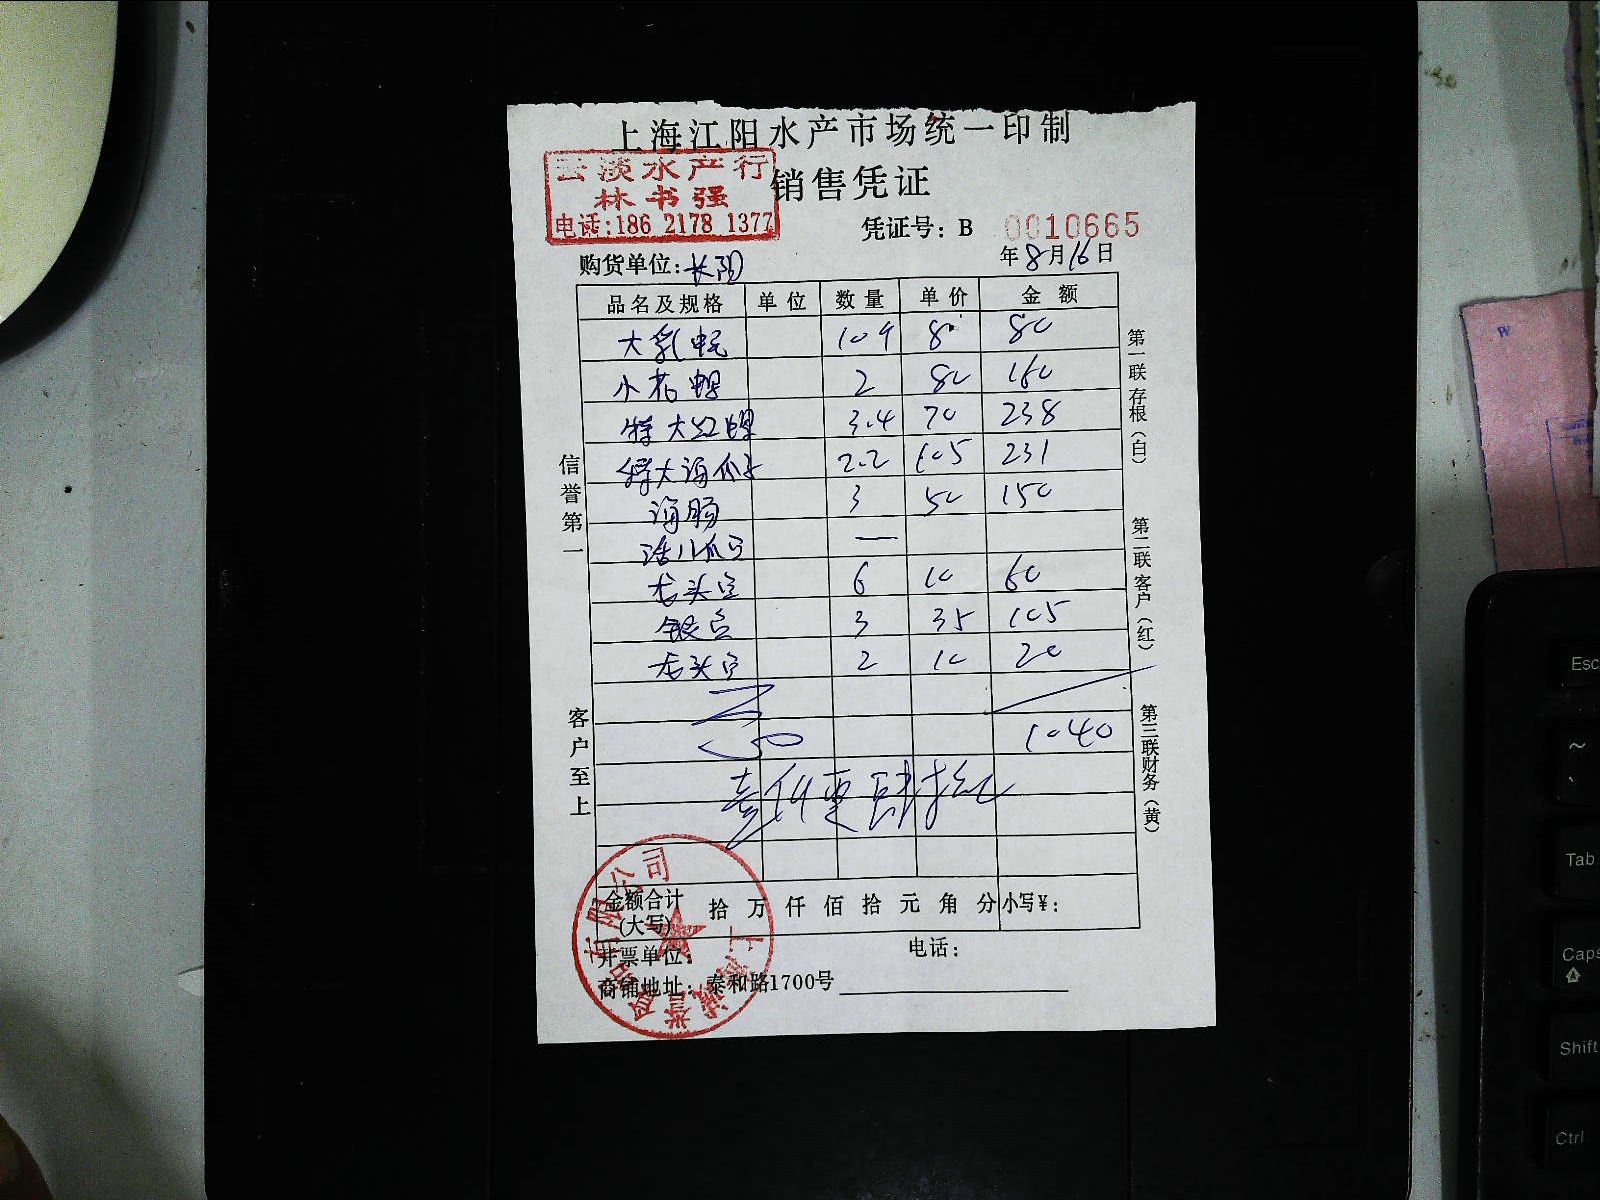 上海江阳水产市场统一印制
云淡水产行
林书强
电话:186 2178 1377
销售凭证
凭证号: B 0010665
购货单位: 长阳
年8月16日
品名及规格 单位 数量 单价 金额
大 8 80
小花 2 80 160
特大红 3.4 70 238
特大海 2.2 105 231
海肠 3 50 150
活八爪 —
龙头 6 10 60
银 3 35 105
龙头 2 10 20
1040
壹仟零肆拾元
金额合计(大写) 拾 万 仟 佰 拾 元 角 分 小写¥:
开票单位: 电话:
商铺地址: 泰和路1700号
信誉第一
客户至上
第一联 存根(白)
第二联 客户(红)
第三联 财务(黄)
上海誉食品有限公司
Esc
~
`
Tab
Caps
Shift
Ctrl
W